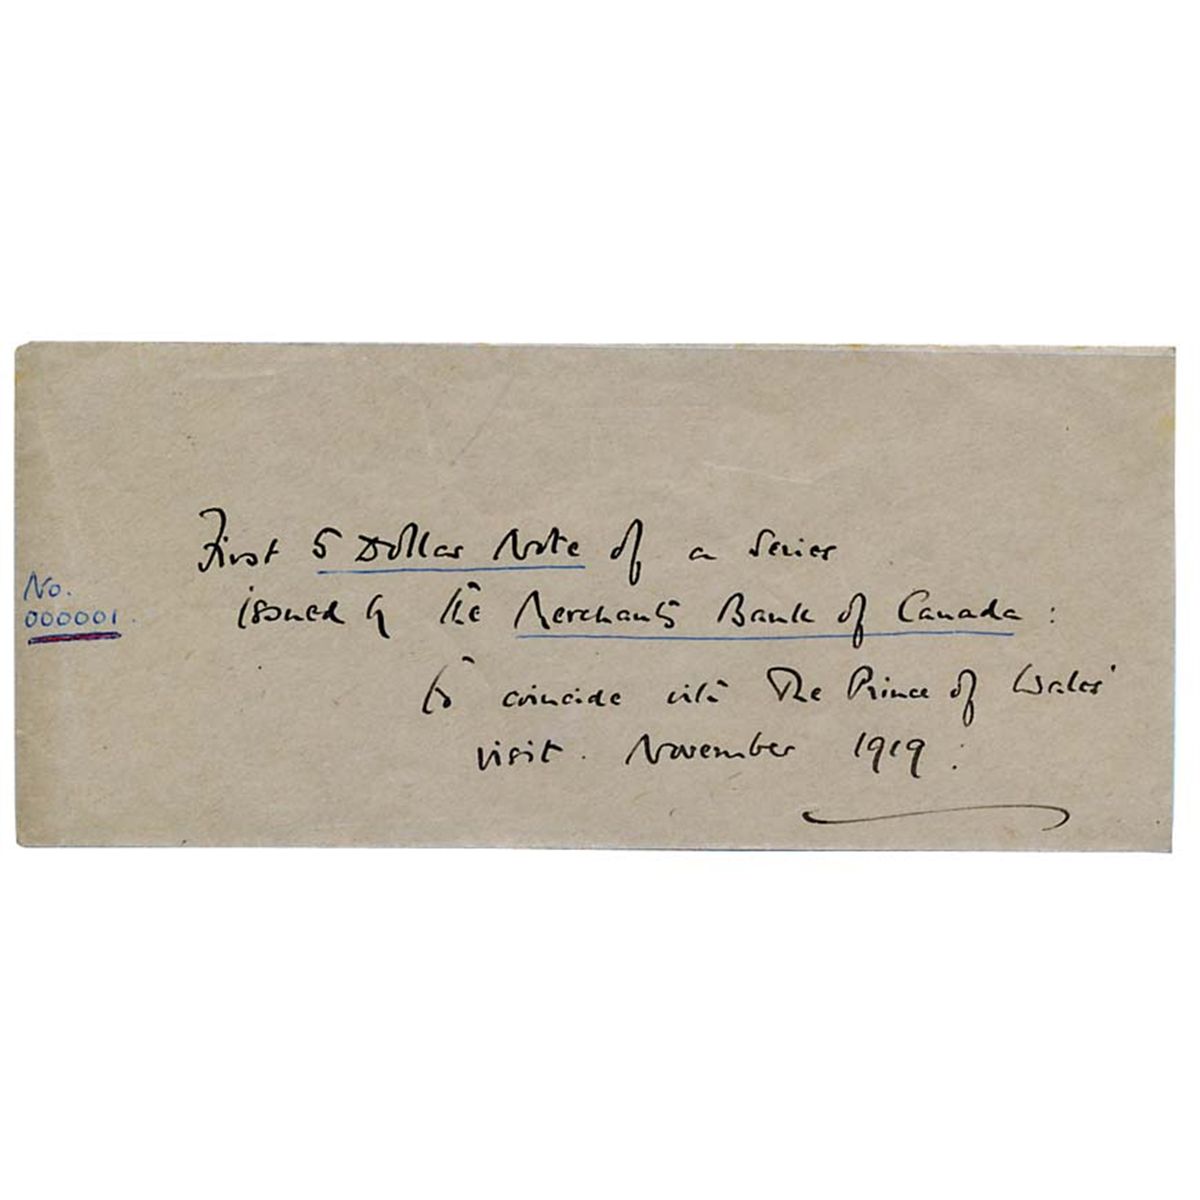 First 5 Dollar Note of a Series
No.
000001.
issued by the Merchants Bank of Canada :
to coincide with The Prince of Wales'
visit. November 1919 :